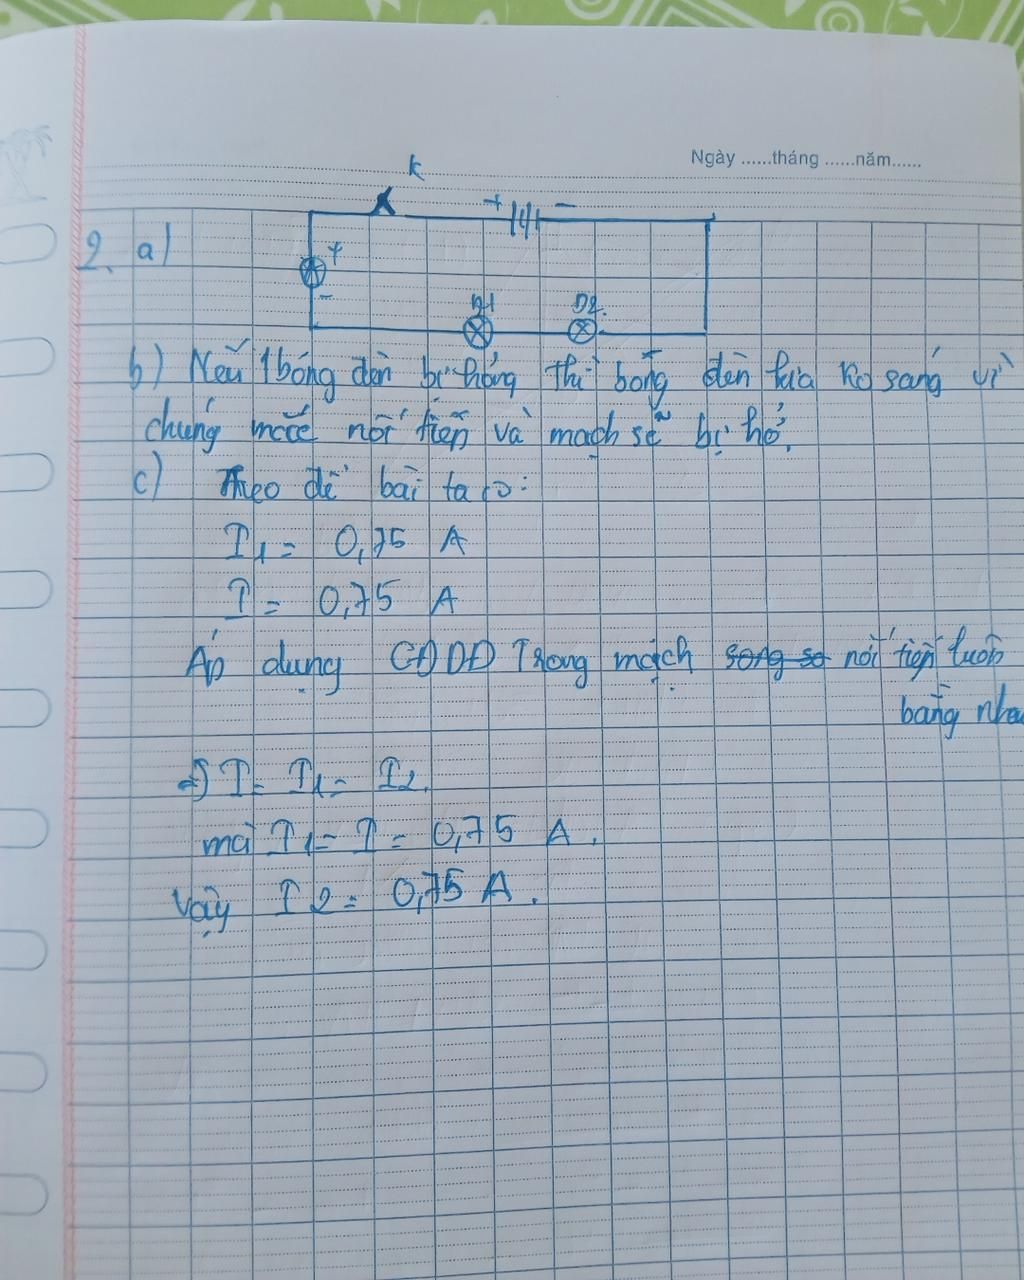 Ngày ......tháng ......năm......
k
+ -
2. a)
+
-
Đ1 Đ2.
b) Nếu 1 bóng đèn bị hỏng thì bóng đèn kia ko sáng vì
chúng mắc nối tiếp và mạch sẽ bị hở.
c) Theo đề bài ta có:
I1 = 0,75 A
I = 0,75 A
Áp dụng CĐDĐ Trong mạch song so nối tiếp luôn
bằng nhau
=> I = I1 = I2.
mà I1 = I = 0,75 A.
Vậy I2 = 0,75 A.